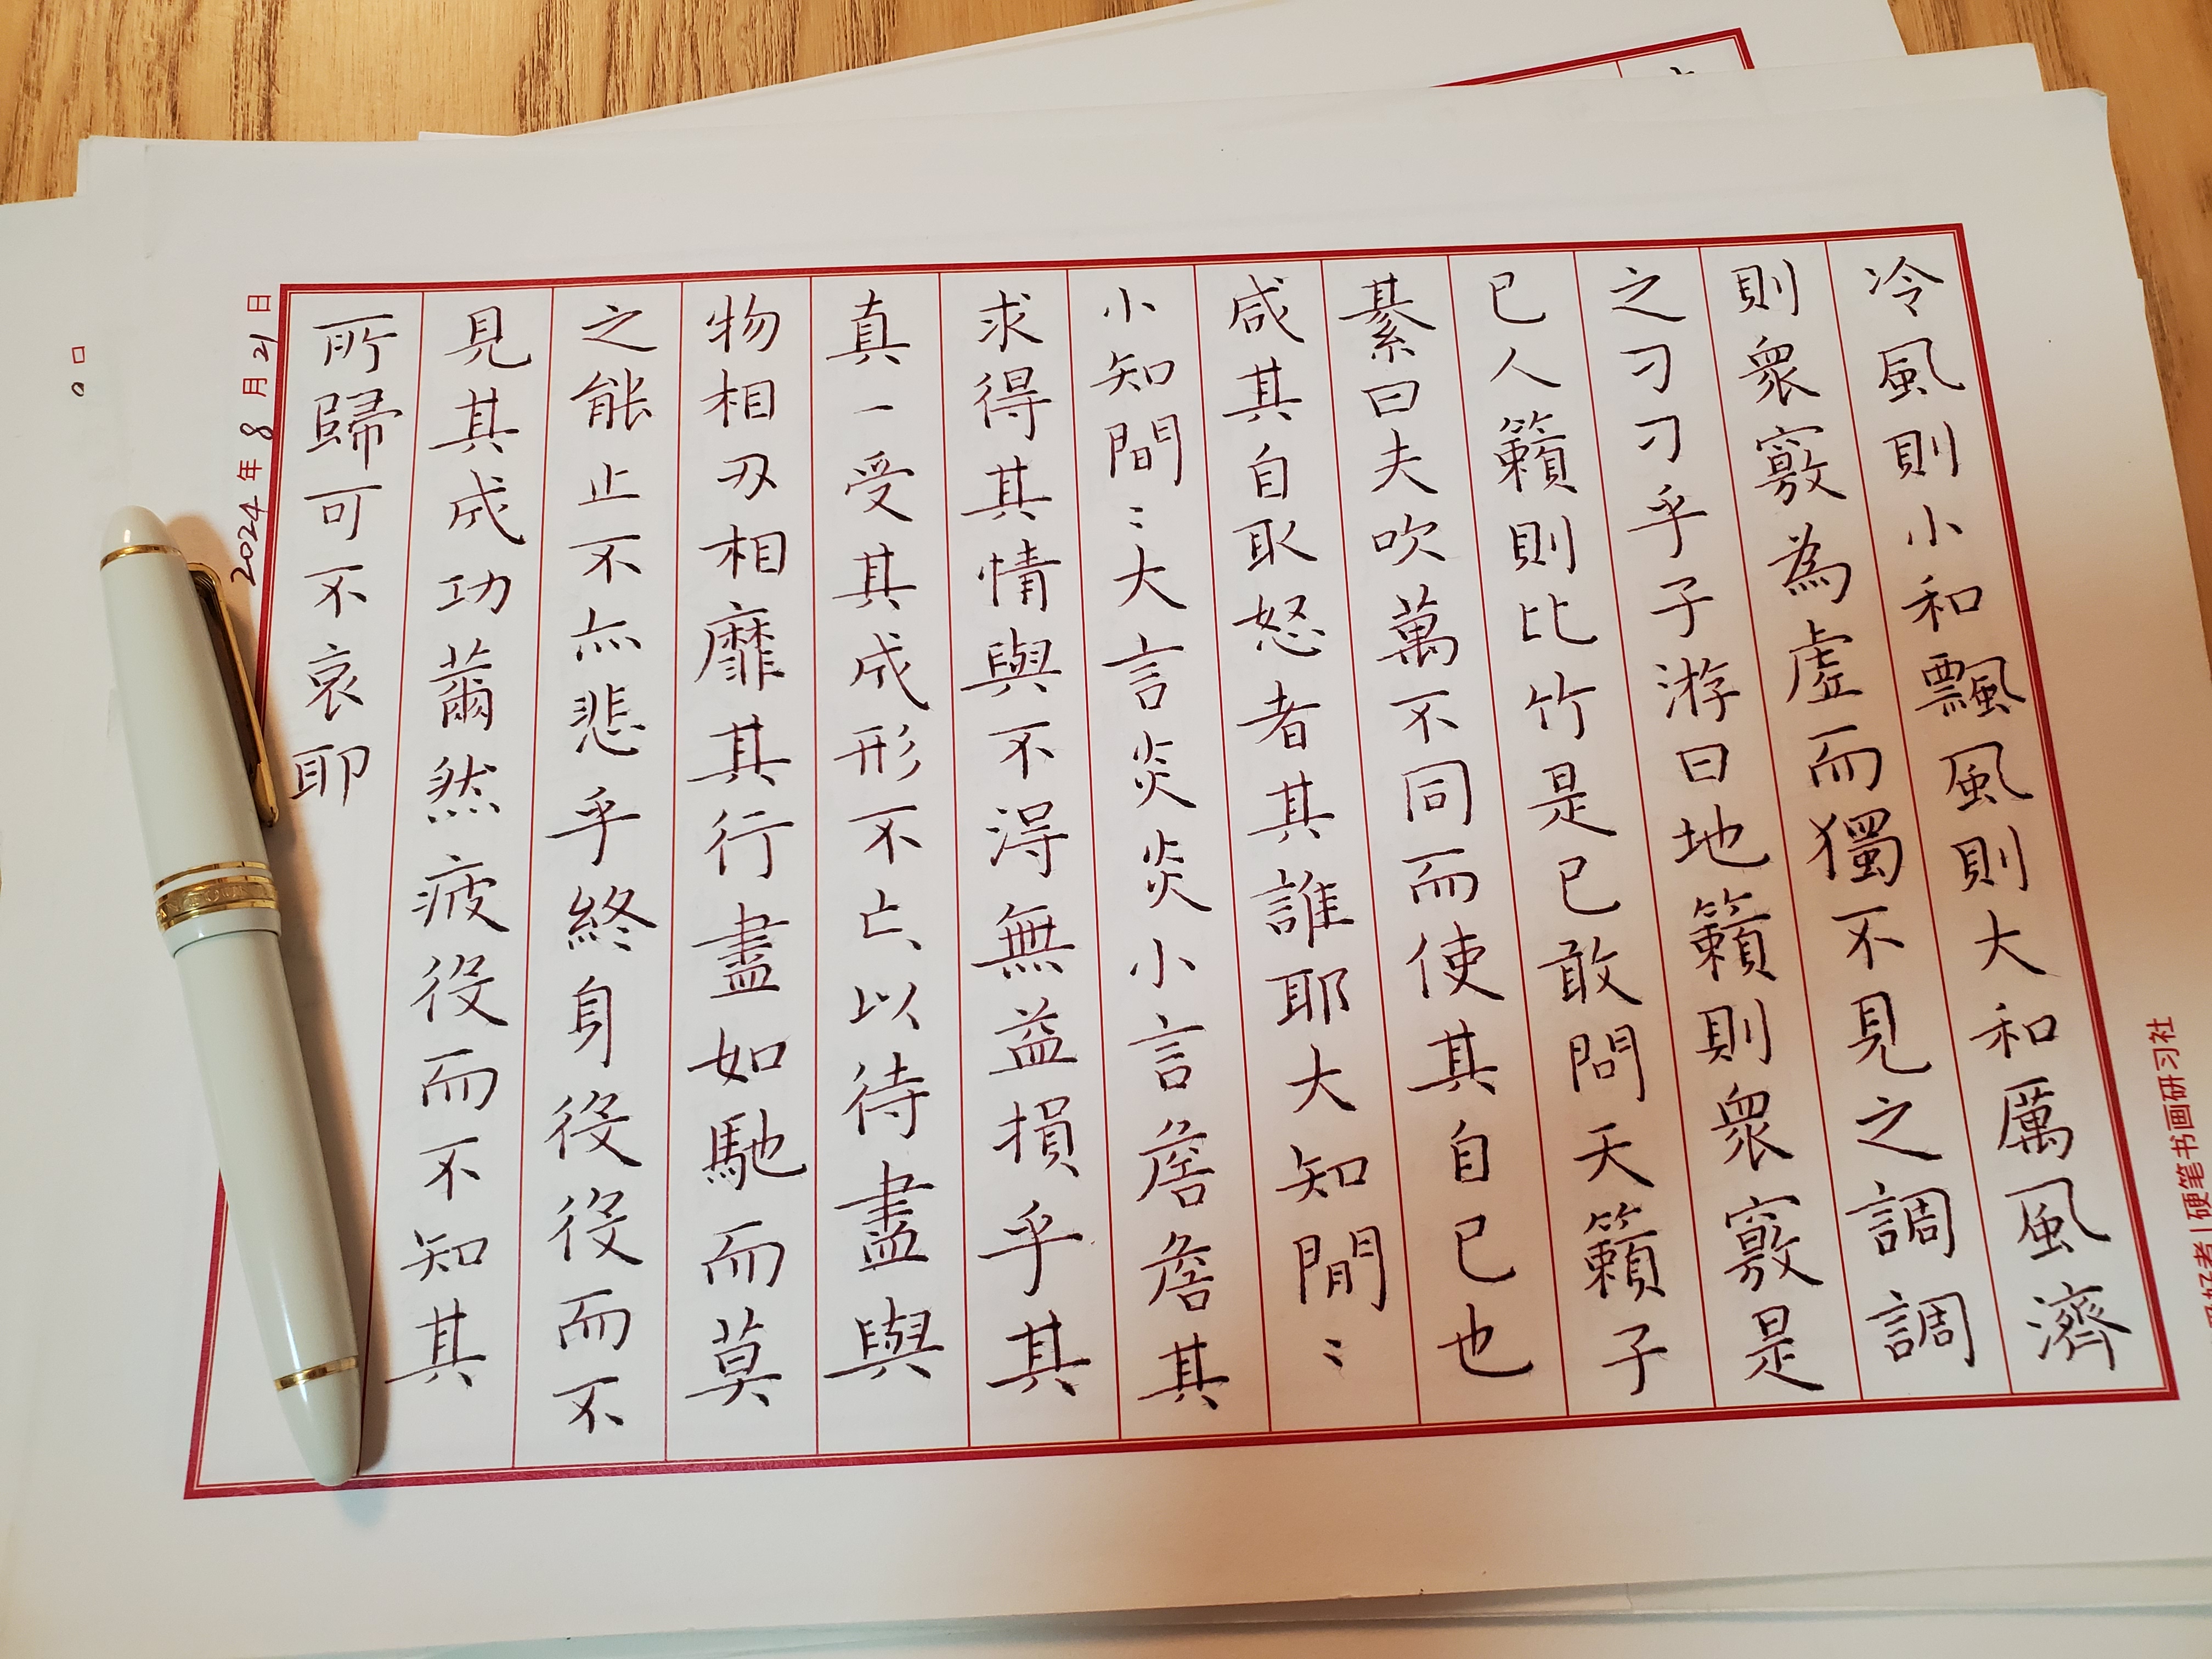 冷風則小和飄風則大和厲風濟
則衆竅為虛而獨不見之調調
之刁刁乎子游曰地籟則衆竅是
已人籟則比竹是已敢問天籟子
綦曰夫吹萬不同而使其自已也
咸其自取怒者其誰耶大知閒〻
小知間〻大言炎炎小言詹詹其
求得其情與不得無益損乎其
真一受其成形不亡以待盡與
物相刃相靡其行盡如馳而莫
之能止不亦悲乎終身役役而不
見其成功薾然疲役而不知其
所歸可不哀耶
2024年8月21日
爱好者|硬笔书画研习社